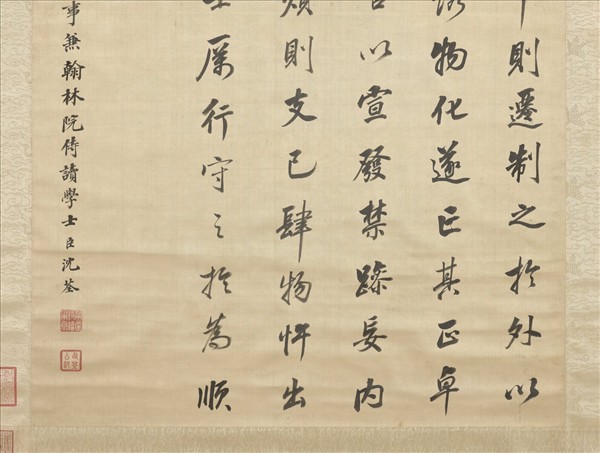 則遷制之於外以
物化遂亡其正卓
以宣發禁躁妄內
則支已肆物忤出
厲行守之於為順
事兼翰林院侍讀學士臣沈荃